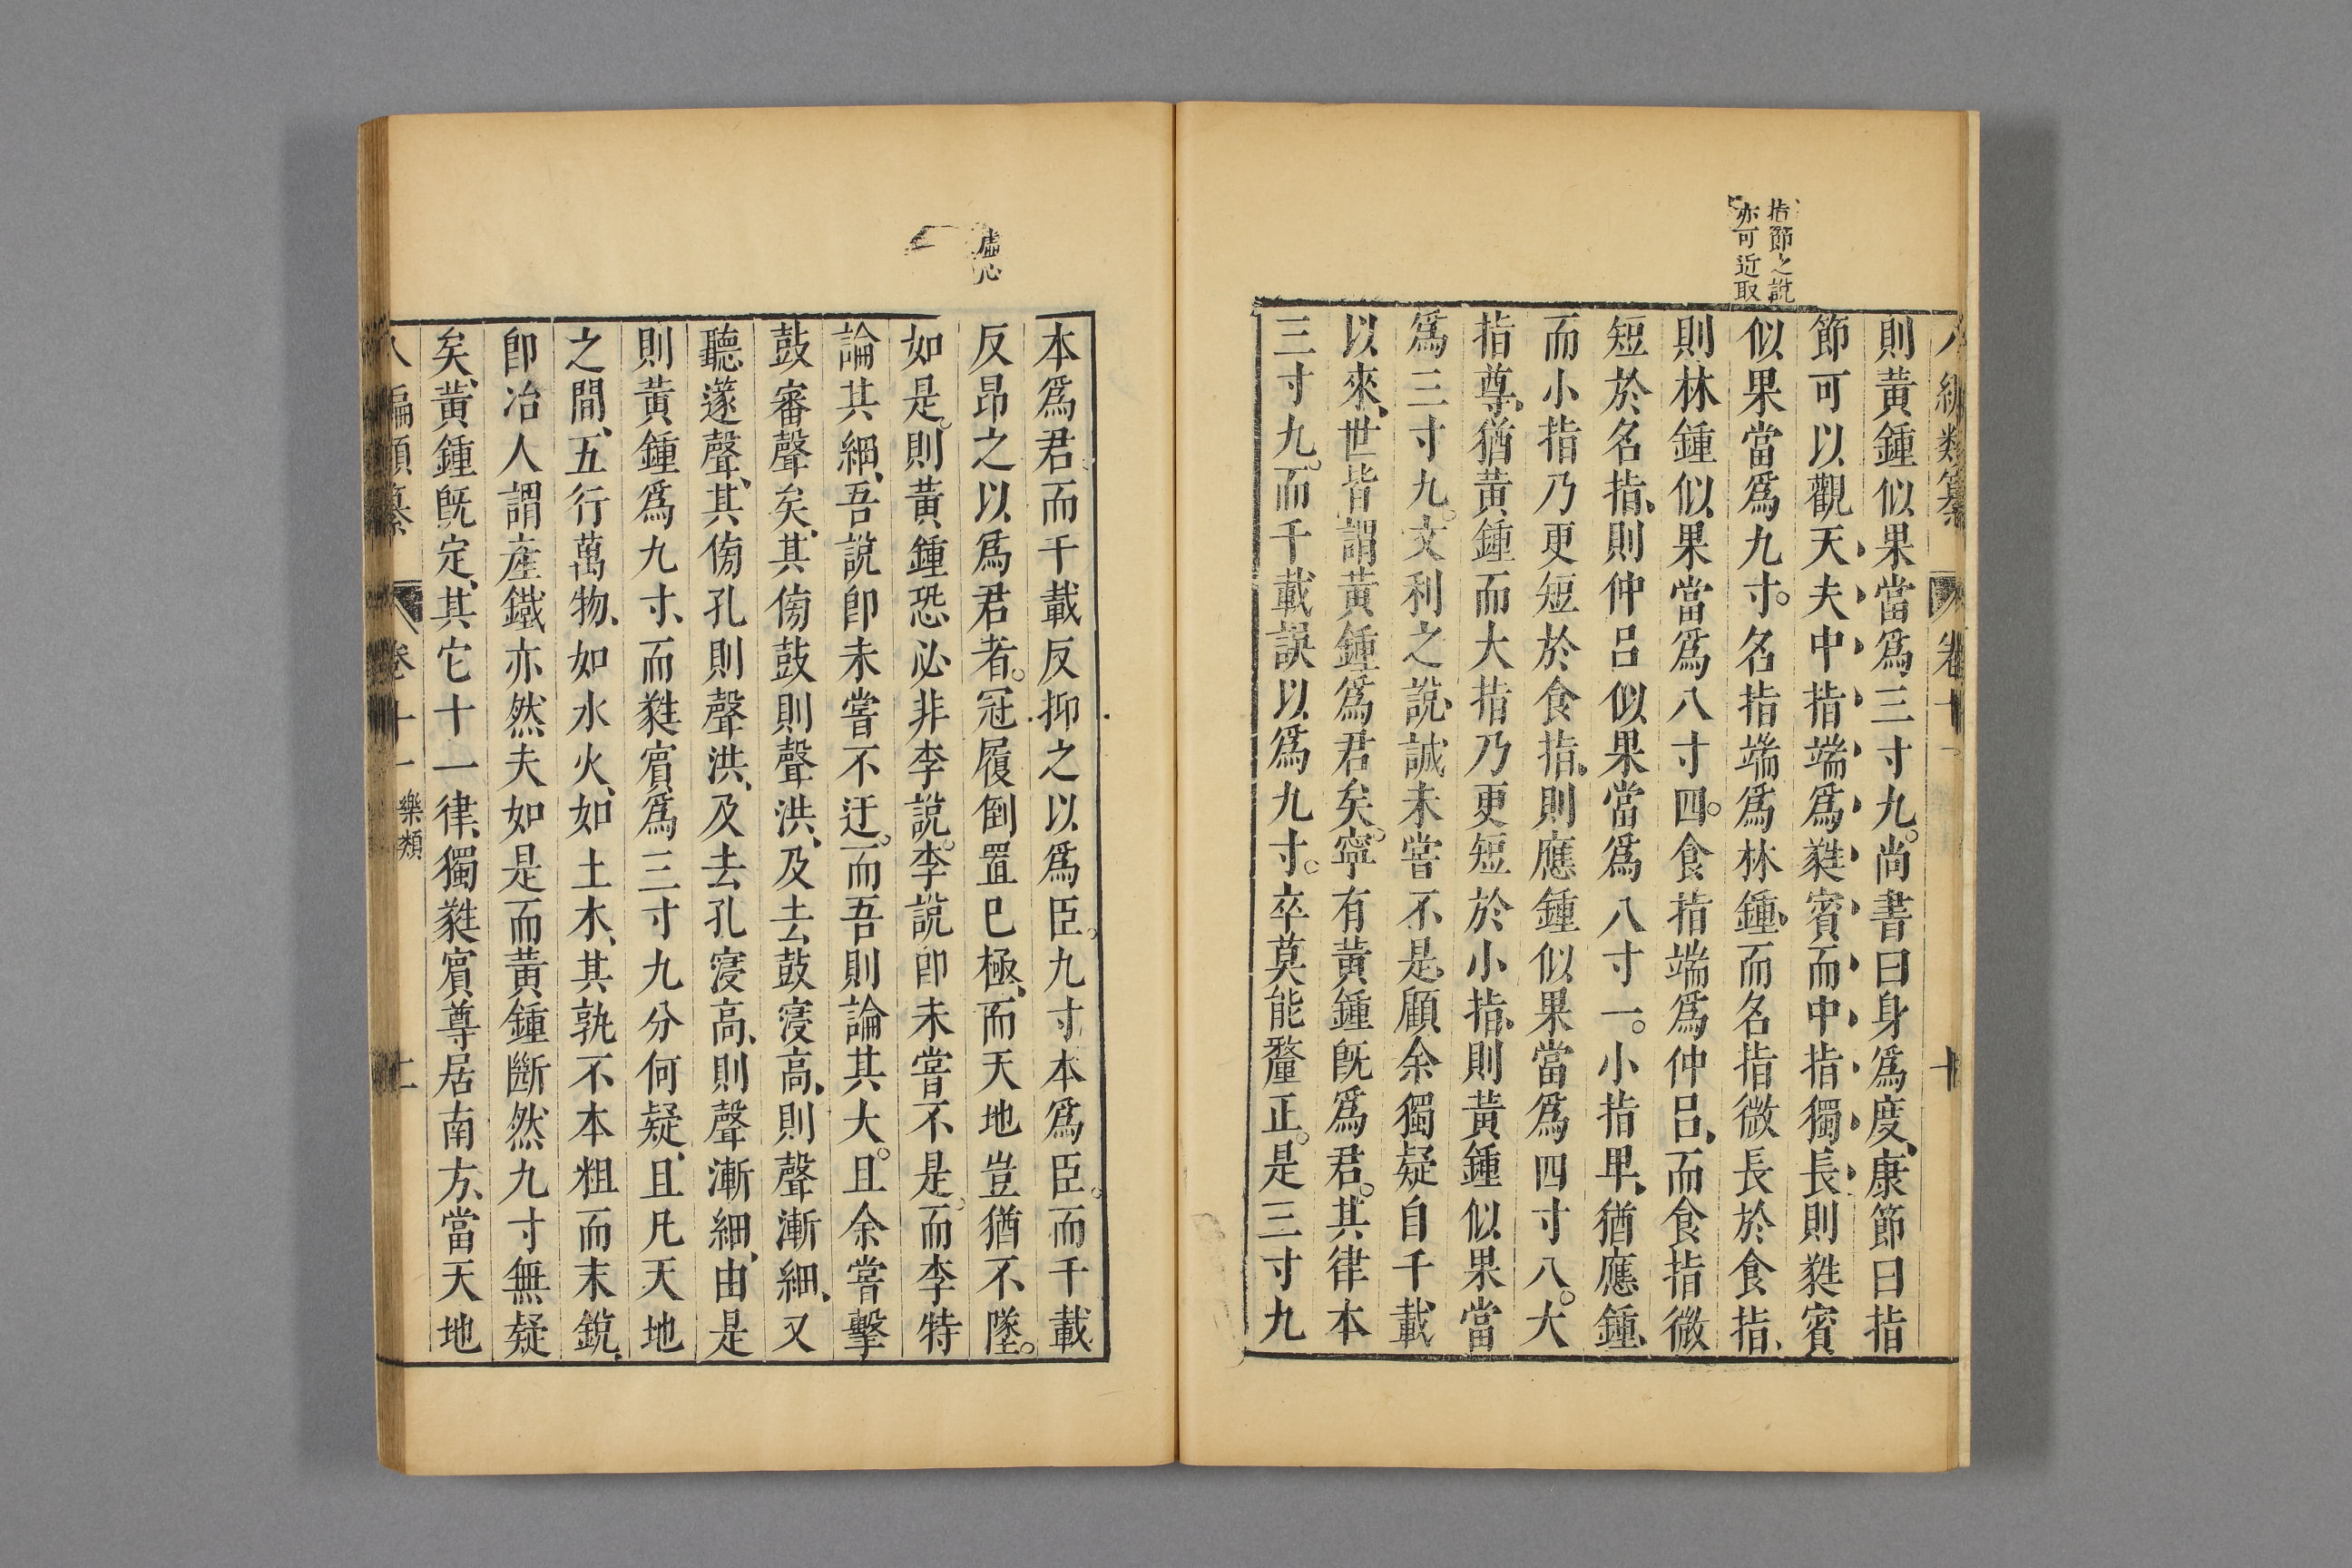 指節之說
亦可近取
八編類纂 卷十一 十
則黃鍾似果當爲三寸九。尚書曰身爲度、康節曰指
節可以觀天、夫中指端爲蕤賓、而中指獨長、則蕤賓
似果當爲九寸。名指端爲林鍾、而名指微長於食指、
則林鍾似果當爲八寸四。食指端爲仲呂、而食指微
短於名指、則仲呂似果當爲八寸一。小指卑、猶應鍾、
而小指乃更短於食指、則應鍾似果當爲四寸八。大
指尊、猶黃鍾、而大指乃更短於小指、則黃鍾似果當
爲三寸九。文利之說、誠未嘗不是、顧余獨疑自千載
以來、世皆謂黃鍾爲君矣。寧有黃鍾旣爲君。其律本
三寸九。而千載誤以爲九寸。卒莫能釐正。是三寸九
虛心
本爲君。而千載反抑之以爲臣。九寸本爲臣。而千載
反昂之以爲君者。冠履倒置巳極、而天地豈猶不墜。
如是。則黃鍾恐必非李說。李說卽未嘗不是。而李特
論其細、吾說卽未嘗不迂。而吾則論其大。且余嘗擊
鼓審聲矣、其傍鼓則聲洪、及去鼓寖高、則聲漸細、又
聽篴聲、其傍孔則聲洪、及去孔寖高、則聲漸細、由是
則黃鍾爲九寸、而蕤賓爲三寸九分何疑、且凡天地
之間、五行萬物、如水火、如土木、其孰不本粗而末銳、
卽冶人謂産鐵亦然夫如是而黃鍾斷然九寸無疑
矣、黃鍾旣定、其它十一律、獨蕤賓尊居南方、當天地
八編類纂 卷十一 樂類 十一